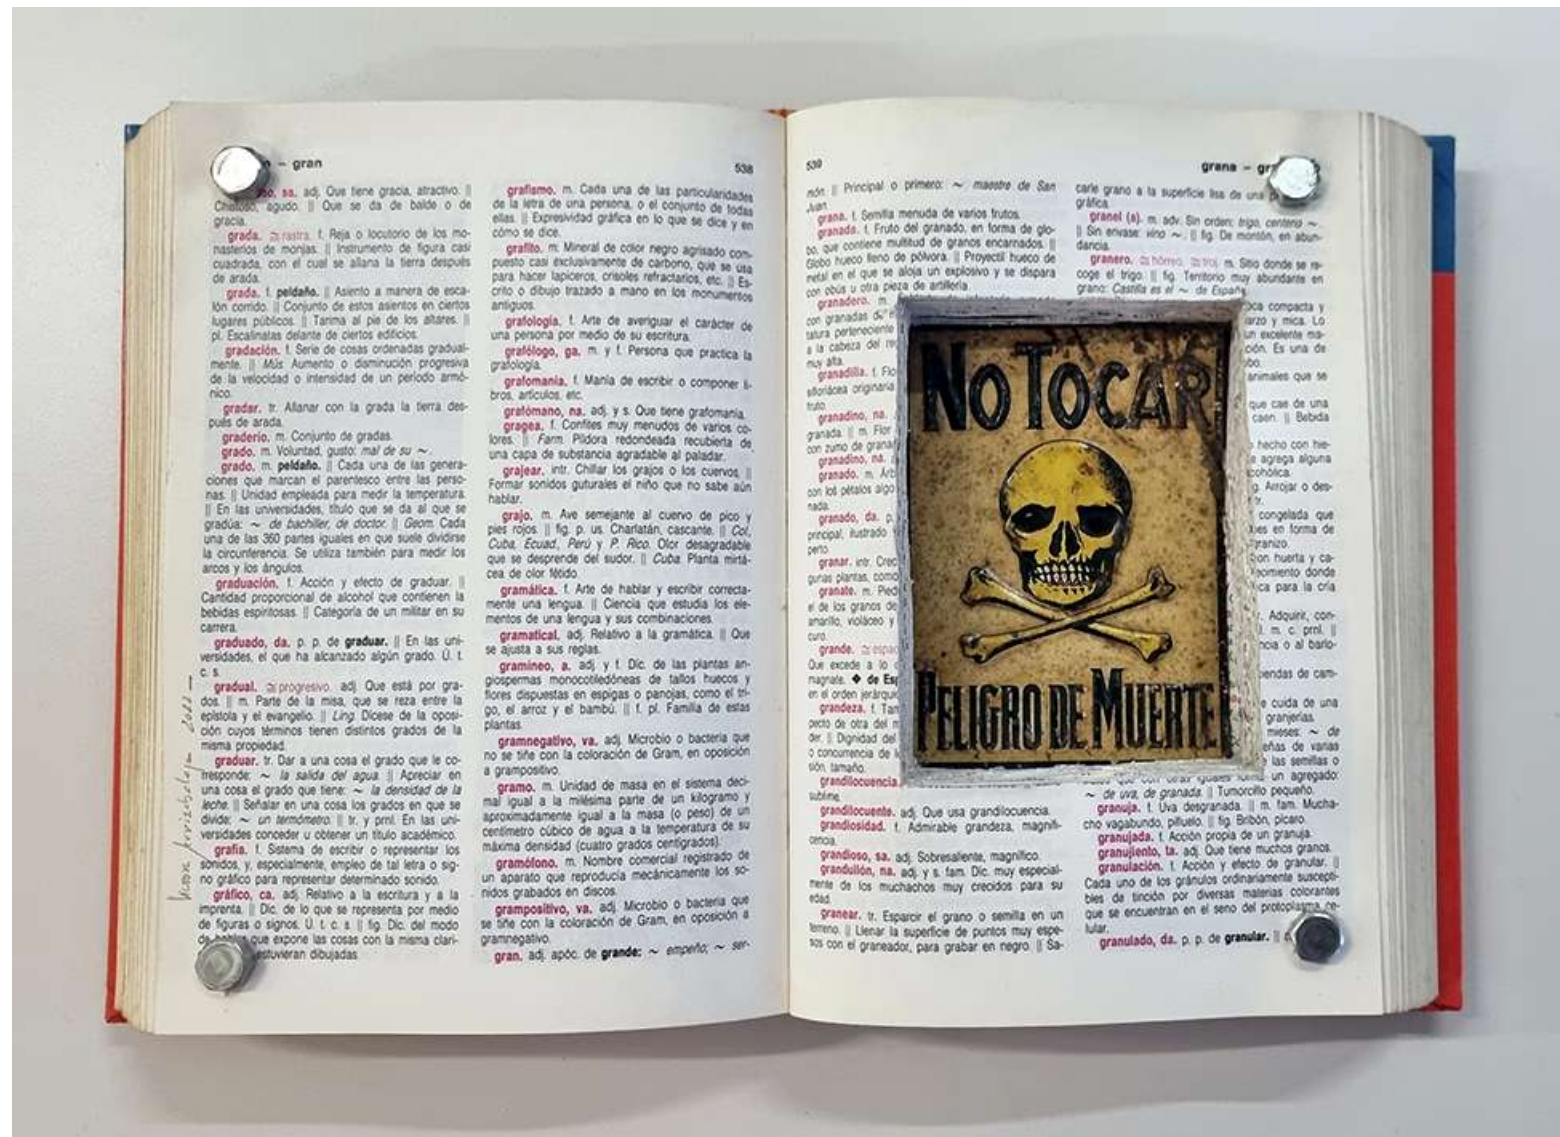 – gran
538
so, sa. adj. Que tiene gracia, atractivo. ||
Chistoso, agudo. || Que se da de balde o de
gracia.
grada. rastra. f. Reja o locutorio de los mo-
nasterios de monjas. || Instrumento de figura casi
cuadrada, con el cual se allana la tierra después
de arada.
grada. f. peldaño. || Asiento a manera de esca-
lón corrido. || Conjunto de estos asientos en ciertos
lugares públicos. || Tarima al pie de los altares. ||
pl. Escalinatas delante de ciertos edificios.
gradación. f. Serie de cosas ordenadas gradual-
mente. || Mús. Aumento o disminución progresiva
de la velocidad o intensidad de un período armó-
nico.
gradar. tr. Allanar con la grada la tierra des-
pués de arada.
graderío. m. Conjunto de gradas.
grado. m. Voluntad, gusto: mal de su ~.
grado. m. peldaño. || Cada una de las genera-
ciones que marcan el parentesco entre las perso-
nas. || Unidad empleada para medir la temperatura.
|| En las universidades, título que se da al que se
gradúa: ~ de bachiller, de doctor. || Geom. Cada
una de las 360 partes iguales en que suele dividirse
la circunferencia. Se utiliza también para medir los
arcos y los ángulos.
graduación. f. Acción y efecto de graduar. ||
Cantidad proporcional de alcohol que contienen la
bebidas espiritosas. || Categoría de un militar en su
carrera.
graduado, da. p. p. de graduar. || En las uni-
versidades, el que ha alcanzado algún grado. Ú. t.
c. s.
gradual. progresivo. adj. Que está por gra-
dos. || m. Parte de la misa, que se reza entre la
epístola y el evangelio. || Ling. Dícese de la oposi-
ción cuyos términos tienen distintos grados de la
misma propiedad.
graduar. tr. Dar a una cosa el grado que le co-
rresponde: ~ la salida del agua. || Apreciar en
una cosa el grado que tiene: ~ la densidad de la
leche. || Señalar en una cosa los grados en que se
divide: ~ un termómetro. || tr. y prnl. En las uni-
versidades conceder u obtener un título académico.
grafía. f. Sistema de escribir o representar los
sonidos, y, especialmente, empleo de tal letra o sig-
no gráfico para representar determinado sonido.
gráfico, ca. adj. Relativo a la escritura y a la
imprenta. || Dic. de lo que se representa por medio
de figuras o signos. Ú. t. c. s. || fig. Dic. del modo
de que expone las cosas con la misma clari-
estuvieran dibujadas.
grafismo. m. Cada una de las particularidades
de la letra de una persona, o el conjunto de todas
ellas. || Expresividad gráfica en lo que se dice y en
cómo se dice.
grafito. m. Mineral de color negro agrisado com-
puesto casi exclusivamente de carbono, que se usa
para hacer lapiceros, crisoles refractarios, etc. || Es-
crito o dibujo trazado a mano en los monumentos
antiguos.
grafología. f. Arte de averiguar el carácter de
una persona por medio de su escritura.
grafólogo, ga. m. y f. Persona que practica la
grafología.
grafomanía. f. Manía de escribir o componer li-
bros, artículos, etc.
grafómano, na. adj. y s. Que tiene grafomanía.
gragea. f. Confites muy menudos de varios co-
lores. || Farm. Píldora redondeada recubierta de
una capa de substancia agradable al paladar.
grajear. intr. Chillar los grajos o los cuervos. ||
Formar sonidos guturales el niño que no sabe aún
hablar.
grajo. m. Ave semejante al cuervo de pico y
pies rojos. || fig. p. us. Charlatán, cascante. || Col.,
Cuba, Ecuad., Perú y P. Rico. Olor desagradable
que se desprende del sudor. || Cuba. Planta mirtá-
cea de olor fétido.
gramática. f. Arte de hablar y escribir correcta-
mente una lengua. || Ciencia que estudia los ele-
mentos de una lengua y sus combinaciones.
gramatical. adj. Relativo a la gramática. || Que
se ajusta a sus reglas.
gramíneo, a. adj. y f. Dic. de las plantas an-
giospermas monocotiledóneas de tallos huecos y
flores dispuestas en espigas o panojas, como el tri-
go, el arroz y el bambú. || f. pl. Familia de estas
plantas.
gramnegativo, va. adj. Microbio o bacteria que
no se tiñe con la coloración de Gram, en oposición
a grampositivo.
gramo. m. Unidad de masa en el sistema deci-
mal igual a la milésima parte de un kilogramo y
aproximadamente igual a la masa (o peso) de un
centímetro cúbico de agua a la temperatura de su
máxima densidad (cuatro grados centígrados).
gramófono. m. Nombre comercial registrado de
un aparato que reproducía mecánicamente los so-
nidos grabados en discos.
grampositivo, va. adj. Microbio o bacteria que
se tiñe con la coloración de Gram, en oposición a
gramnegativo.
gran. adj. apóc. de grande: ~ empeño; ~ ser-
539
grana –
món. || Principal o primero: ~ maestre de San
Juan.
grana. f. Semilla menuda de varios frutos.
granada. f. Fruto del granado, en forma de glo-
bo, que contiene multitud de granos encarnados. ||
Globo hueco lleno de pólvora. || Proyectil hueco de
metal en el que se aloja un explosivo y se dispara
con obús u otra pieza de artillería.
granadero. m.
con granadas de
tatura perteneciente
a la cabeza del
muy alta.
granadilla. f.
sifloriácea originaria
fruto.
granadino, na.
granada. || m. Flor
con zumo de
granadino, na.
granado. m.
con los pétalos algo
nada.
granado, da. p.
principal, ilustrado
perto.
granar. intr.
gunas plantas, como
granate. m.
el de los granos de
amarillo, violáceo y
curo.
grande.
Que excede a lo
magnate. ◆ de
en el orden
grandeza. f.
pecto de otra del m
der. || Dignidad del
o concurrencia de
sión, tamaño.
grandilocuencia.
sublime.
grandilocuente. adj. Que usa grandilocuencia.
grandiosidad. f. Admirable grandeza, magnifi-
cencia.
grandioso, sa. adj. Sobresaliente, magnífico.
grandullón, na. adj. y s. fam. Dic. muy especial-
mente de los muchachos muy crecidos para su
edad.
granear. tr. Esparcir el grano o semilla en un
terreno. || Llenar la superficie de puntos muy espe-
sos con el graneador, para grabar en negro. || Sa-
carle grano a la superficie lisa de una
gráfica.
granel (a). m. adv. Sin orden: trigo, centeno ~.
|| Sin envase: vino ~. || fig. De montón, en abun-
dancia.
granero. hórreo, troj. m. Sitio donde se re-
coge el trigo. || fig. Territorio muy abundante en
grano: Castilla es el ~ de España.
compacta y
y mica. Lo
un excelente ma-
Es una de
animales que se
que cae de una
caen. || Bebida
hecho con hie-
agrega alguna
Arrojar o des-
tr.
congelada que
en forma de
granizo.
huerta y ca-
donde
para la cría
Adquirir, con-
m. c. prnl. ||
o al barlo-
de cam-
cuida de una
granjerías.
mieses: ~ de
de varias
las semillas o
un agregado:
~ de uva, de granada. || Tumorcillo pequeño.
granuja. f. Uva desgranada. || m. fam. Mucha-
cho vagabundo, pilluelo. || fig. Bribón, pícaro.
granujada. f. Acción propia de un granuja.
granujiento, ta. adj. Que tiene muchos granos.
granulación. f. Acción y efecto de granular. ||
Cada uno de los gránulos ordinariamente suscepti-
bles de tinción por diversas materias colorantes
que se encuentran en el seno del protoplasma ce-
lular.
granulado, da. p. p. de granular. ||
NO TOCAR
PELIGRO DE MUERTE